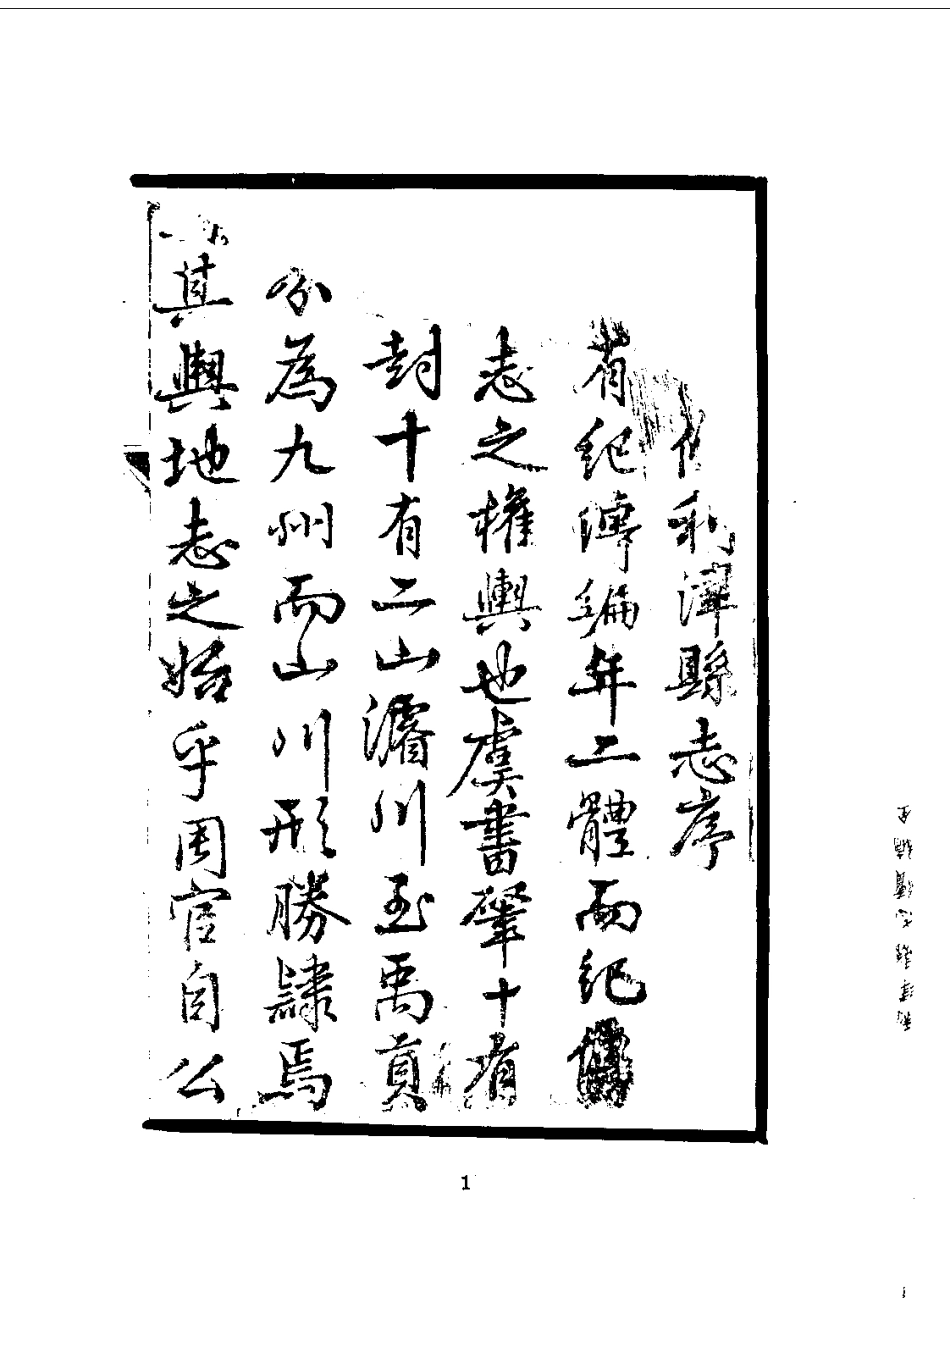 利津縣志序
有紀傳編年二體而紀
志之權輿也虞書肇十有
封十有二山濬川至禹貢
分為九州而山川形勝隸焉
其輿地志之始乎周官自公
1
利津縣志續編
1